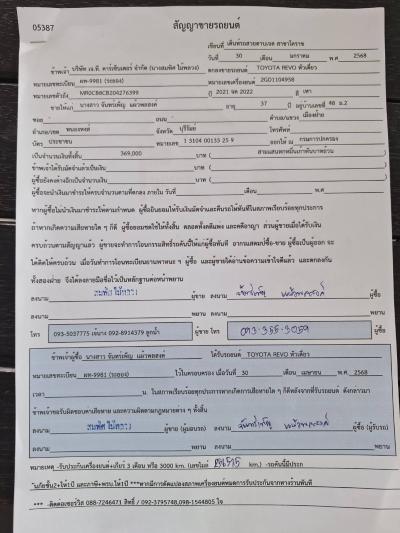 05387
สัญญาขายรถยนต์
เขียนที่ เต็นท์รถสวยตามเจต สาขาโคราช
วันที่ 30 เดือน มกราคม พ.ศ. 2568
ข้าพเจ้า บริษัท เจ.ที. คาร์เซ็นเตอร์ จำกัด (นางสมทิศ ไม้หลวง) ตกลงขายรถยนต์ TOYOTA REVO หัวเดี่ยว
หมายเลขทะเบียน ผท-9981 (ระยอง) หมายเลขเครื่อง 2GD1104958
หมายเลขตัวถัง MR0CB8CB204276399 ปี 2021 จด 2022 สี เทา
ขายให้แก่ นางสาว จันทร์เพ็ญ แม้วพลสงค์ อายุ 37 ปี อยู่บ้านเลขที่ 48 ม.2
ซอย - ถนน - ตำบล/แขวง เมืองฝาง
อำเภอ/เขต จังหวัด บุรีรัมย์ โทรศัพท์
บัตร ประชาชน หมายเลข 1 3104 00133 25 9 ออกให้ ณ กรมการปกครอง
เป็นจำนวนเงินทั้งสิ้น 369,000 บาท ( สามแสนหกหมื่นเก้าพันบาทถ้วน )
ข้าพเจ้าได้รับมัดจำแล้วเป็นเงิน บาท ( )
ผู้ซื้อยังคงค้างอีกเป็นจำนวนเงิน บาท ( )
ผู้ซื้อจะนำเงินมาชำระให้ครบจำนวนตามที่ตกลง ภายใน วันที่ เดือน พ.ศ.
หากผู้ซื้อไม่นำเงินมาชำระตามกำหนด ผู้ซื้อยินยอมให้ริบเงินมัดจำและคืนรถให้ทันทีในสภาพเรียบร้อยทุกประการ
ถ้าหากเกิดความเสียหายใด ๆ ก็ดี ผู้ซื้อยอมชดใช้ให้ทั้งสิ้น ตลอดทั้งคดีแพ่ง และคดีอาญา ส่วนผู้ขายเมื่อได้รับเงิน
ครบถ้วนตามสัญญาแล้ว ผู้ขายจะทำการโอนกรรมสิทธิ์รถคันนี้ให้แก่ผู้ซื้อทันที
ได้คิดให้ครบถ้วน เมื่อวันทำการโอนทะเบียนยานพาหนะ ฯ ผู้ซื้อ และผู้ขายได้อ่านข้อความเข้าใจดีแล้ว และตกลงกัน
ทั้งสองฝ่าย จึงได้ลงลายมือชื่อไว้เป็นหลักฐานต่อหน้าพยาน
ลงนาม สมทิศ ไม้หลวง ผู้ขาย ลงนาม จันทร์เพ็ญ แม้วพลสงค์ ผู้ซื้อ
ลงนาม พยาน ลงนาม พยาน
โทร 093-5037775 เจ๊นาง 092-8914379 ลูกน้ำ ผู้ขาย โทร 093-355-3059 ผู้ซื้อ
ข้าพเจ้าผู้ซื้อ นางสาว จันทร์เพ็ญ แม้วพลสงค์ ได้รับรถยนต์ TOYOTA REVO หัวเดี่ยว
หมายเลขทะเบียน ผท-9981 (ระยอง) ไว้ในครอบครอง เมื่อวันที่ 30 เดือน เมษายน พ.ศ. 2568
เวลา น. ในสภาพเรียบร้อยทุกประการหากเกิดการเสียหายใด ๆ ก็ดีหลังจากที่รับรถยนต์ ดังกล่าวมา
ข้าพเจ้าขอรับผิดชอบค่าเสียหาย และความผิดตามกฎหมายต่าง ๆ ทั้งสิ้น
ลงนาม สมทิศ ไม้หลวง ผู้ขาย (ผู้มอบรถ) ลงนาม จันทร์เพ็ญ แม้วพลสงค์ ผู้ซื้อ (ผู้รับรถ)
ลงนาม พยาน ลงนาม พยาน
หมายเหตุ -รับประกันเครื่องยนต์+เกียร์ 3 เดือน หรือ 3000 km. (เลขไมล์ km.) -รถคันนี้มีประก
*แก๊สขั้น2+ให้1ปี และภาษี+พรบ.ให้1ปี ***หากมีการดัดแปลงสภาพเครื่องยนต์หมดการรับประกันจากทางร้านทันที
*** -ติดต่อเซอร์วิส 088-7246471 สิทธิ์ / 092-3795748,098-1544805 ใจ